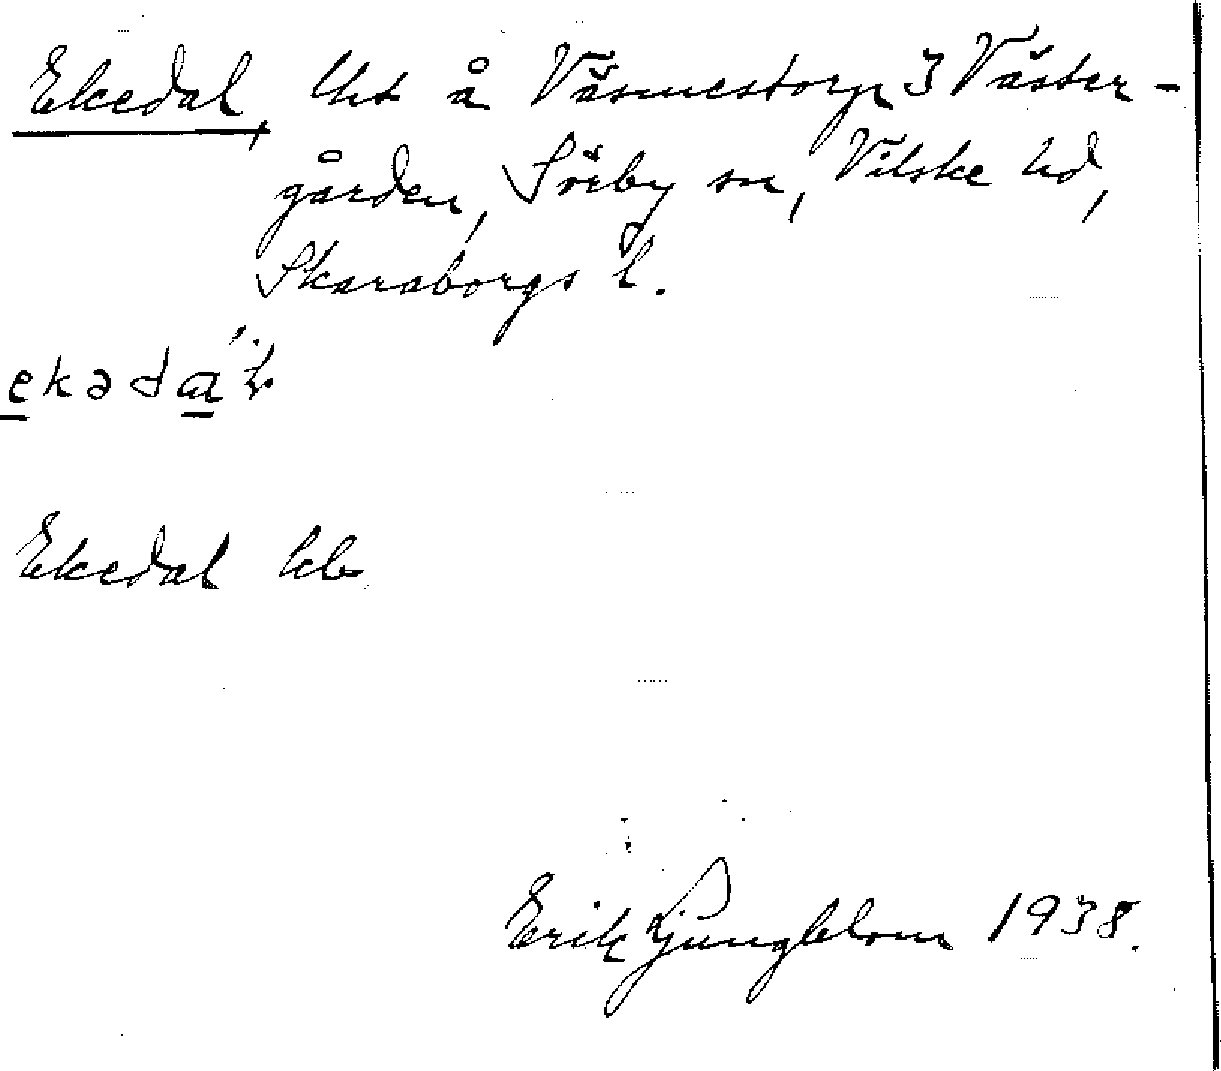 Ekedal, lht å Väsmestorp 3 Väster-
gården, Sörby sn, Vilske hd,
Skaraborgs l.
ekədα´ɫ.
Ekedal kb
Erik Ljungblom 1938.